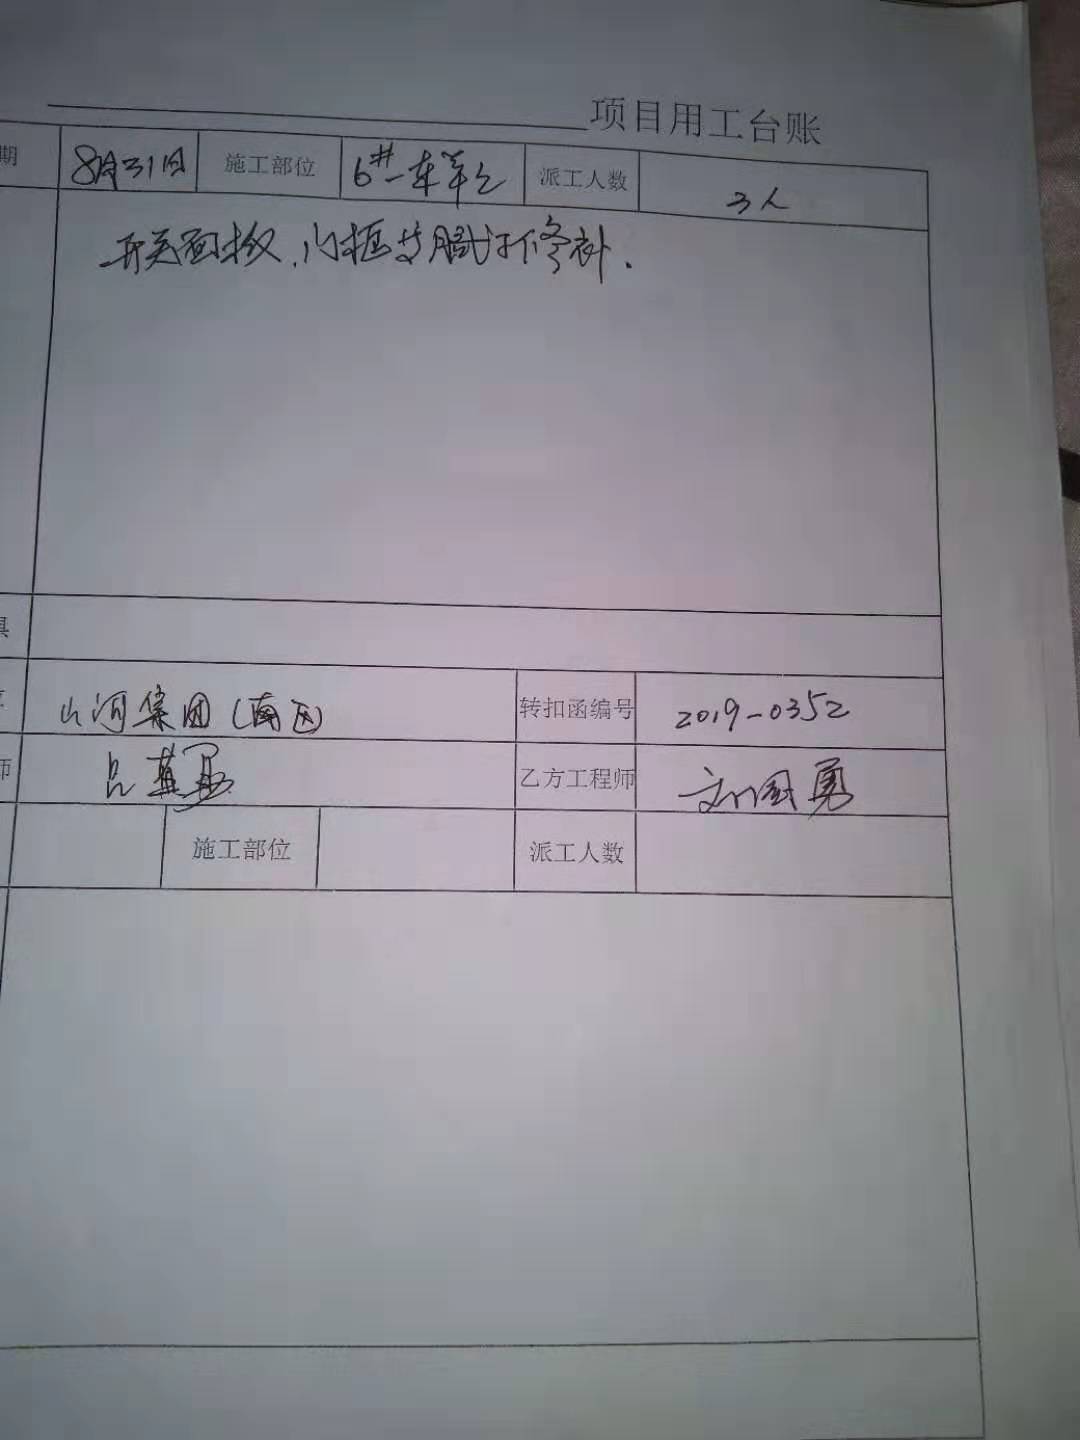 项目用工台账
期 8月31日 施工部位 6#一车单元 派工人数 3人
开关面板,门框边腻子修补.
具
山河集团(南区) 转扣函编号 2019-0352
师 吕 乙方工程师 刘国勇
施工部位 派工人数